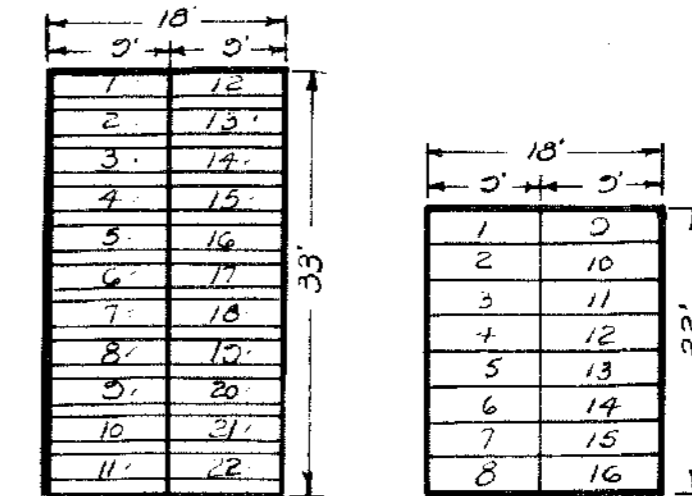 18'
9' 9'
1 12
2 13
3 14
4 15
5 16
6 17
7 18
8 19
9 20
10 21
11 22
33'
18'
9' 9'
1 9
2 10
3 11
4 12
5 13
6 14
7 15
8 16